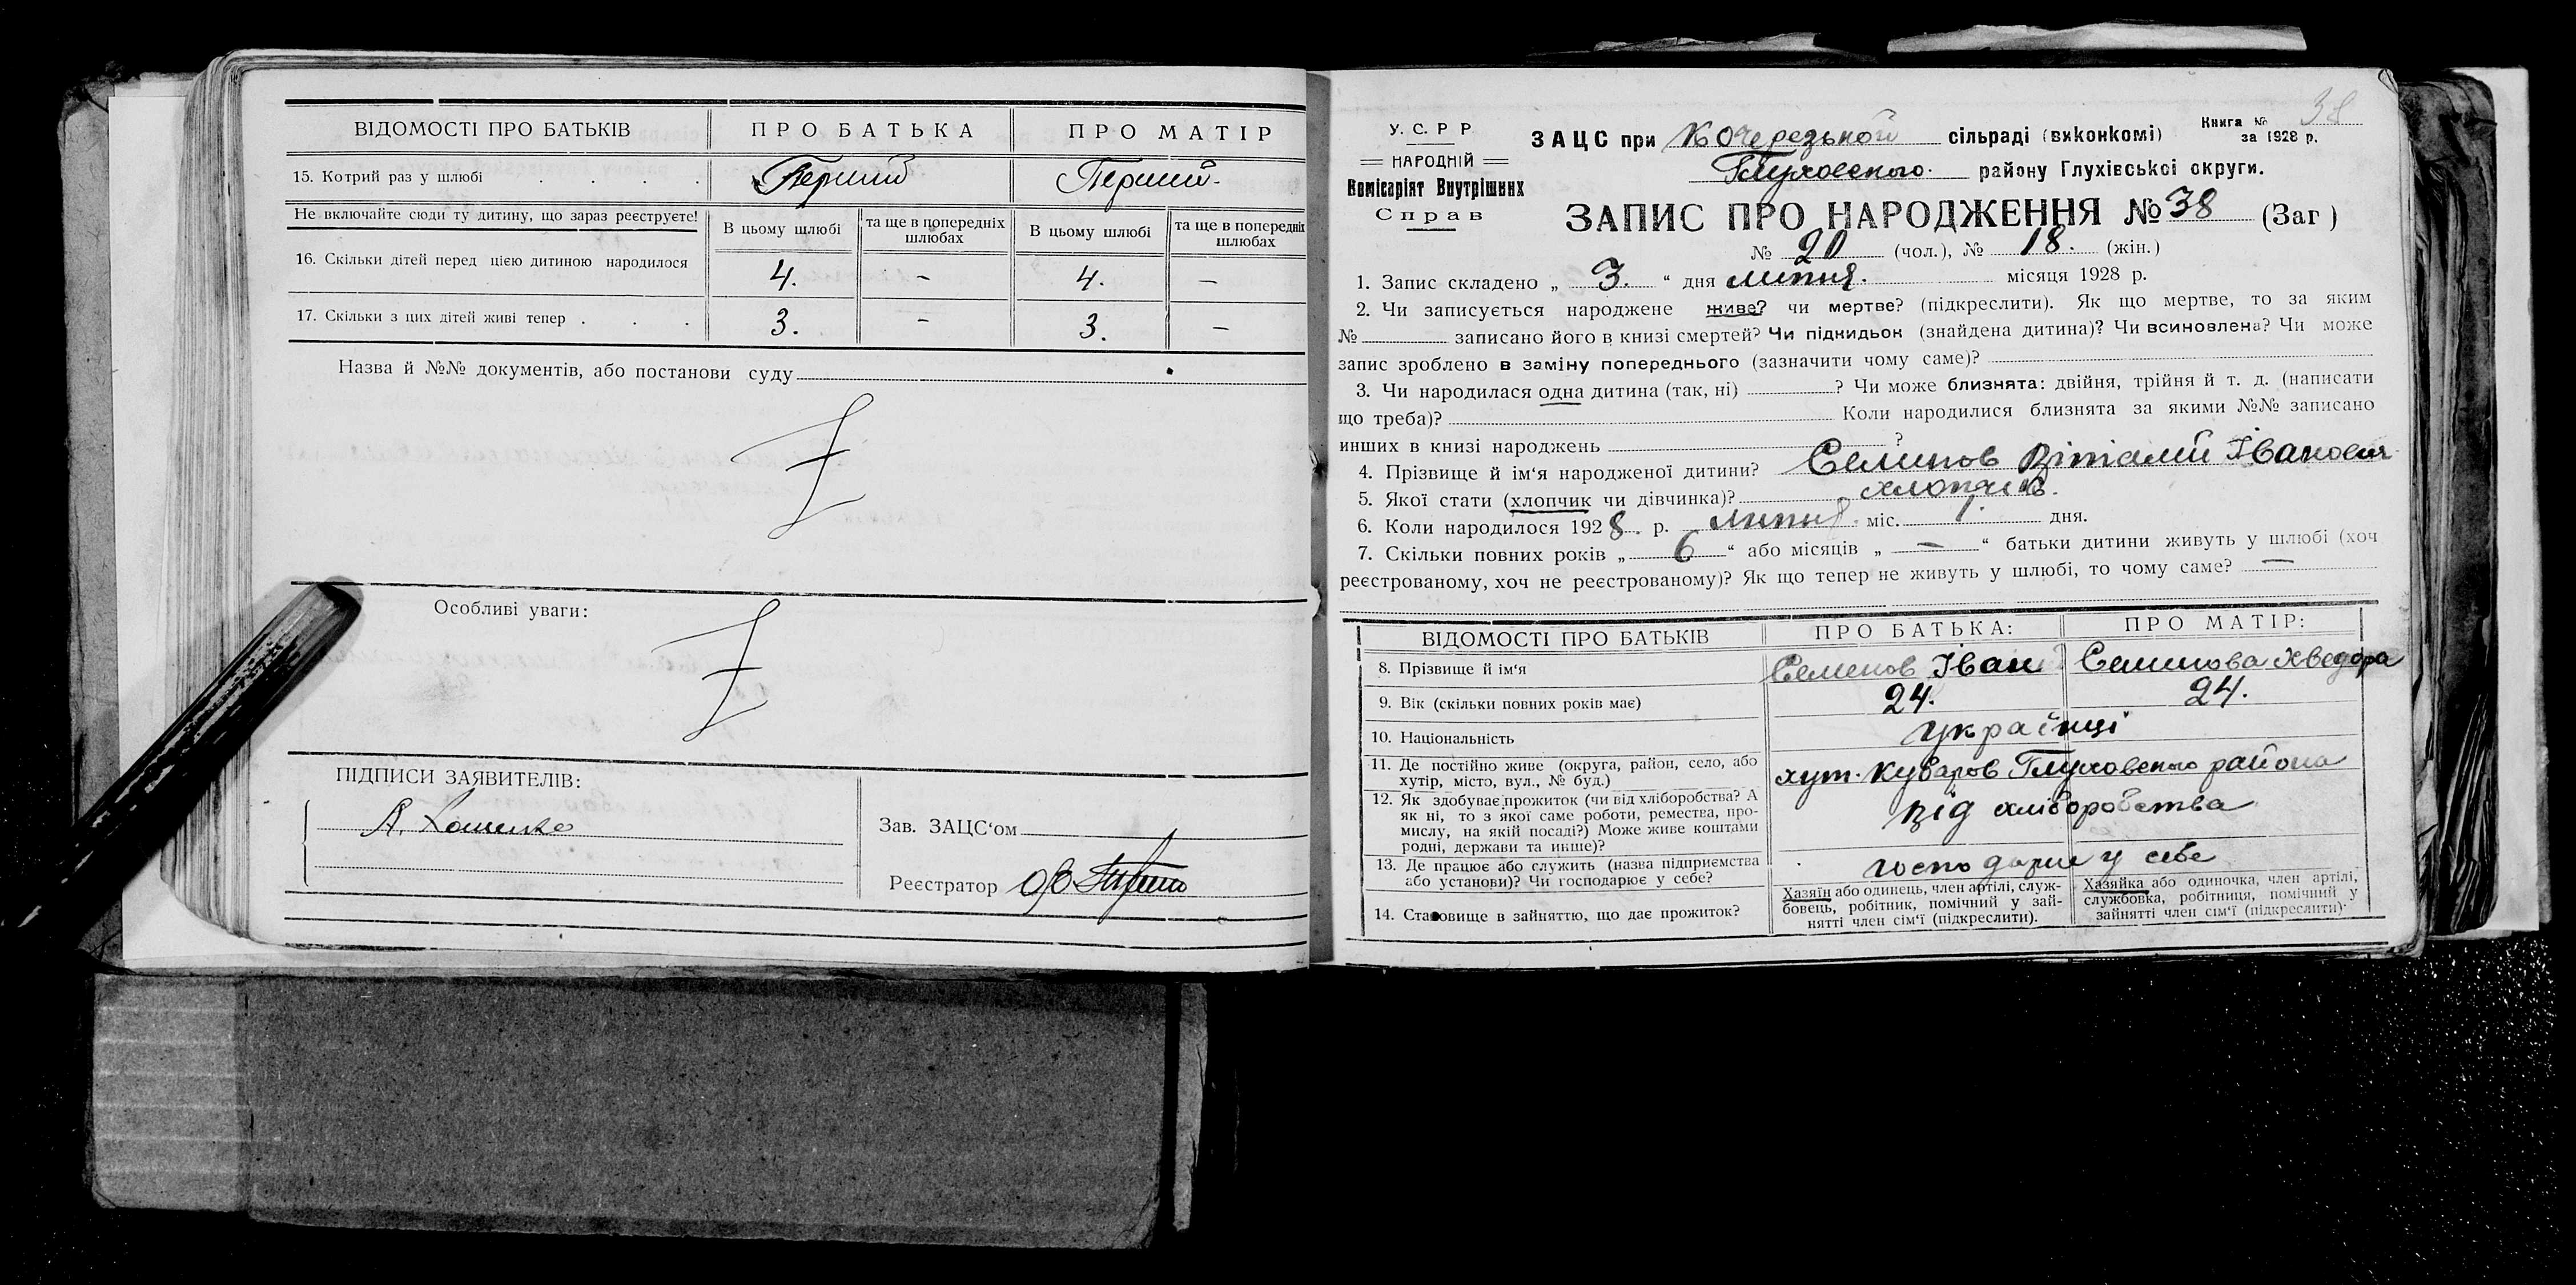 ВІДОМОСТІ ПРО БАТЬКІВ
ПРО БАТЬКА
ПРО МАТІР
15. Котрий раз у шлюбі . . . .
Перший
Перший.
Не включайте сюди ту дитину, що зараз реєструєте!
В цьому шлюбі
та ще в попередніх шлюбах
В цьому шлюбі
та ще в попередніх шлюбах
16. Скільки дітей перед цією дитиною народилося
4. – 4. –
17. Скільки з цих дітей живі тепер . . .
3. – 3. –
Назва й №№ документів, або постанови суду
Особливі уваги:
ПІДПИСИ ЗАЯВИТЕЛІВ:
Зав. ЗАЦС‘ом
Реєстратор
38
У. С. Р Р.
НАРОДНІЙ
Комісаріят Внутрішних
Справ
Книга №
за 1928 р.
ЗАЦС при Кочерезькой сільраді (виконкомі)
Глуховского. району Глухівської округи.
ЗАПИС ПРО НАРОДЖЕННЯ № 38 (Заг )
№ 20 (чол.), № 18. (жін.)
1. Запис складено „ 3. “ дня липня. місяця 1928 р.
2. Чи записується народжене живе? чи мертве? (підкреслити). Як що мертве, то за яким
№ записано його в книзі смертей? Чи підкидьок (знайдена дитина)? Чи всиновлена? Чи може
запис зроблено в заміну попереднього (зазначити чому саме)?
3. Чи народилася одна дитина (так, ні) ? Чи може близнята: двійня, трійня й т. д. (написати
що треба)? Коли народилися близнята за якими №№ записано
инших в книзі народжень ?
4. Прізвище й ім‘я народженої дитини? Семинов Віталий Іванович
5. Якої стати (хлопчик чи дівчинка)? хлопчик.
6. Коли народилося 1928. р. липня. міс. 1. дня.
7. Скільки повних років „ 6 “ або місяців „ — “ батьки дитини живуть у шлюбі (хоч
реєстрованому, хоч не реєстрованому)? Як що тепер не живуть у шлюбі, то чому саме? —
ВІДОМОСТІ ПРО БАТЬКІВ
ПРО БАТЬКА:
ПРО МАТІР:
8. Прізвище й ім‘я
Семенов Іван
Семинова Хведора
9. Вік (скільки повних років має)
24.
24.
10. Національність
Українці
11. Де постійно живе (округа, район, село, або
хутір, місто, вул., № буд.)
хут. Кубаров Глуховского района
12. Як здобуває прожиток (чи від хліборобства? А
як ні, то з якої саме роботи, ремества, про-
мислу, на якій посаді?) Може живе коштами
родні, держави та инше)?
від хліборобства
13. Де працює або служить (назва підприємства
або установи)? Чи господарює у себе?
господарює у себе
14. Становище в зайняттю, що дає прожиток?
Хазяїн або одинець, член артілі, служ-
бовець, робітник, помічний у зай-
нятті член сім‘ї (підкреслити).
Хазяйка або одиночка, член артілі,
службовка, робітниця, помічний у
зайнятті член сім‘ї (підкреслити).